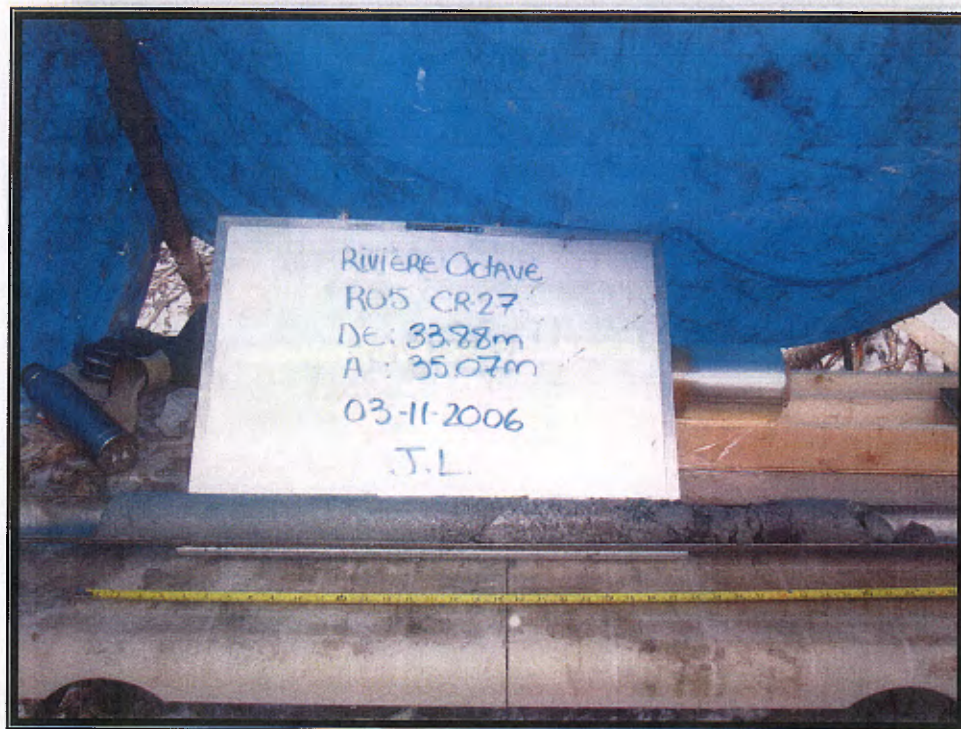 RIVIÈRE OCTAVE
RO5 CR-27
DE: 33.88m
A : 35.07m
03-11-2006
J.L.